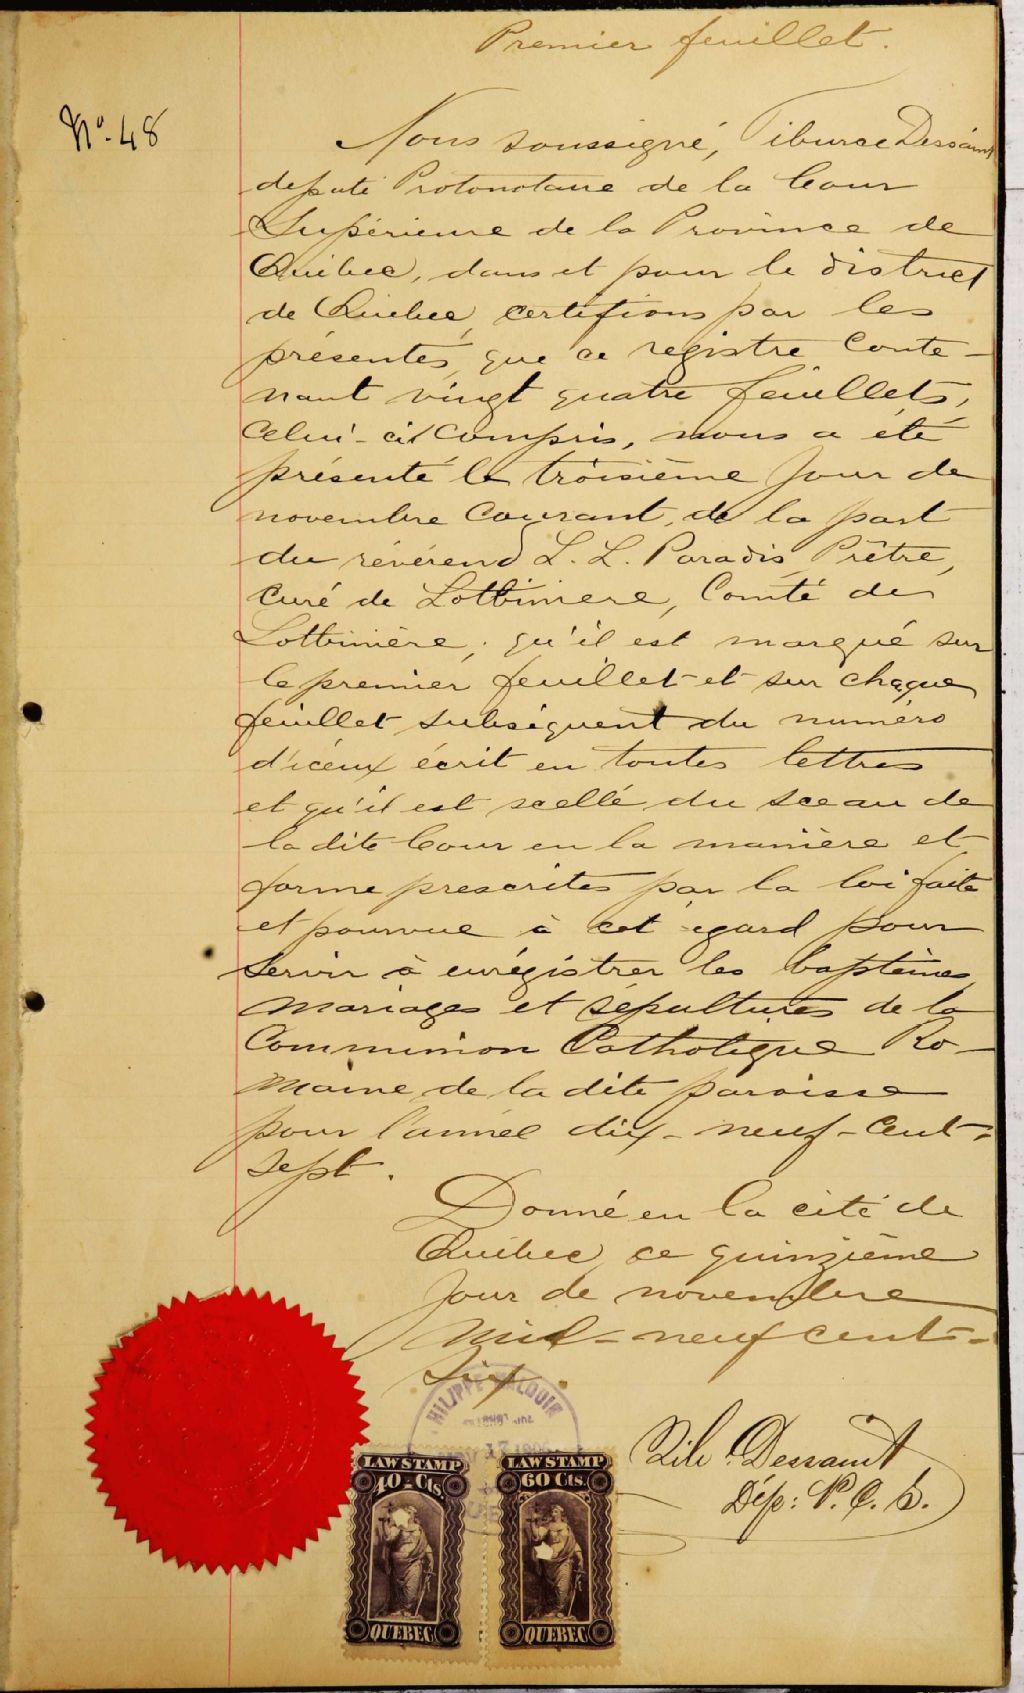 Premier feuillet.
No. 48
Nous soussigné, Tiburce Dessaint
député Protonotaire de la Cour
Supérieure de la Province de
Québec, dans et pour le district
de Québec, certifions par les
présentes, que ce registre conte-
nant vingt quatre feuillets,
celui-ci compris, nous a été
présenté le troisième jour de
novembre courant, de la part
du révérend L. L. Paradis, Prêtre,
curé de Lotbinière, Comté de
Lotbinière; qu'il est marqué sur
le premier feuillet et sur chaque
feuillet subséquent du numéro
d'iceux écrit en toutes lettres
et qu'il est scellé du sceau de
la dite Cour en la manière et
forme prescrites par la loi faite
et pourvue à cet égard pour
servir à enrégistrer les baptêmes
mariages et sépultures de la
Communion Catholique Ro-
maine de la dite paroisse
pour l'année dix-neuf-cent-
sept.
Donné en la cité de
Québec, ce quinzième
jour de novembre
mil-neuf cent-
six.
Tib. Dessaint
Dép: P. C. S.
LAW STAMP
40 Cts.
QUEBEC
LAW STAMP
60 Cts.
QUEBEC